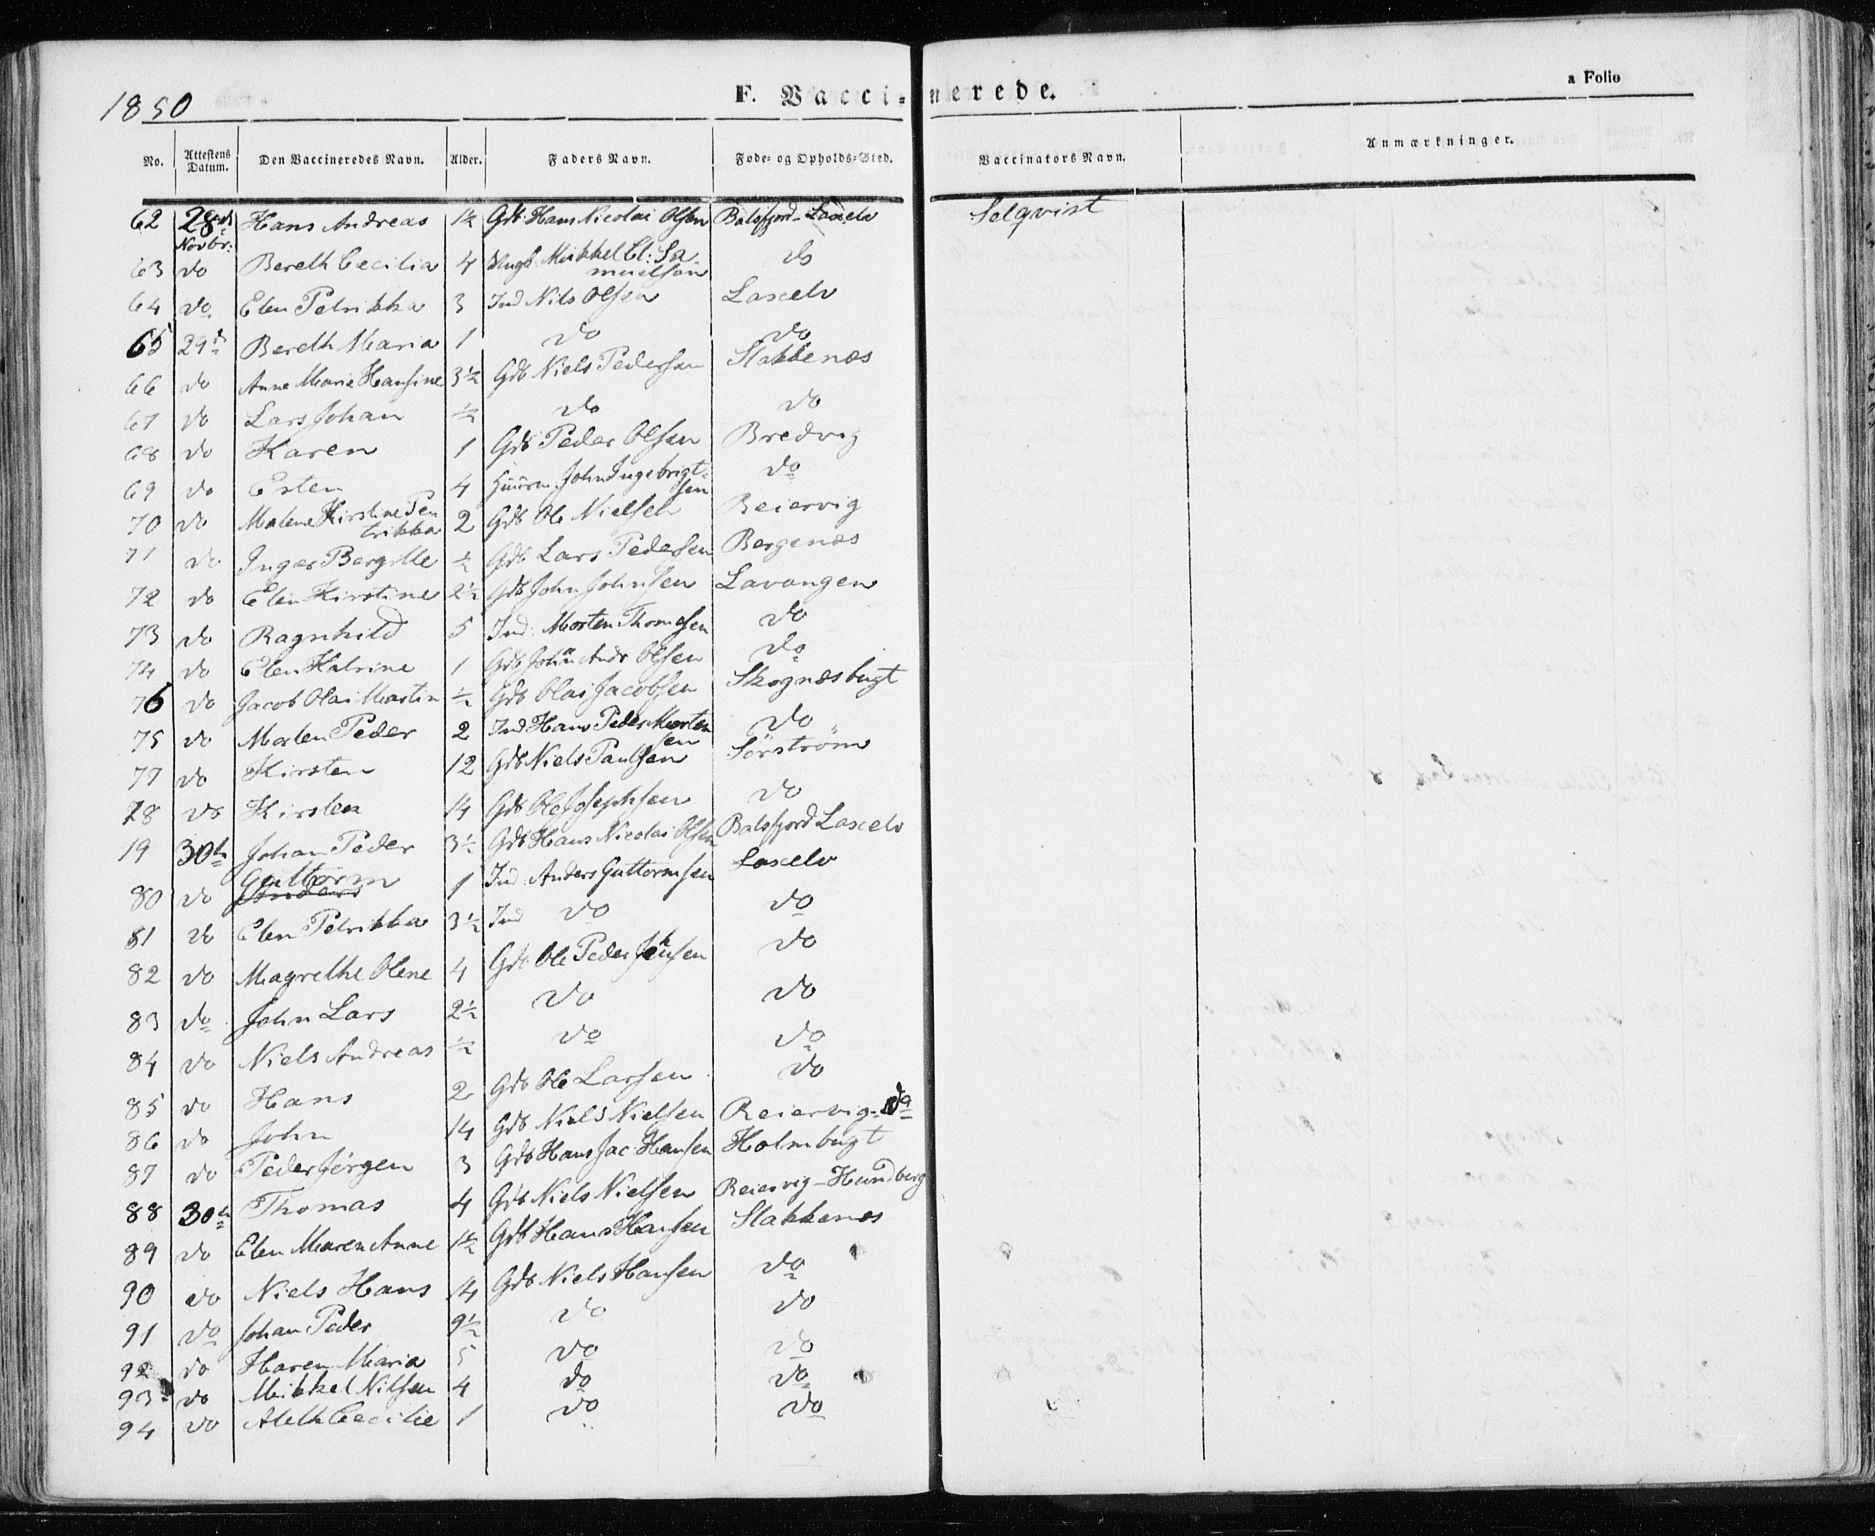 1850
F. Vaccinerede.
a Folio
No. Attestens Datum. Den Vaccineredes Navn. Alder. Faders Navn. Føde- og Opholds-Sted. Vaccinators Navn. Anmærkninger.
62 28de Novbr: Hans Andreas 1½ Gdb: Hans Nicolai Olsen Balsfjord - Laxelv Selqvist
63 do Bereth Cecilia 4 Mikkel Cl: Samuelsøn do
64 do Elen Petrikka 3 Ind Nils Olsen Laxelv
65 29d Bereth Maria 1 do do
66 do Anne Marie Hansine 3½ Gdb Niels Pedersen Stakkenæs
67 do Lars Johan ½ do do
68 do Karen 1 Gdb Peder Olsen Bredvig
69 do Esten 4 Huusm. John Ingebrigtsen do
70 do Malene Kirstine Petrikka 2 Gdb Ole Nielsen Reiervig
71 do Inger Bergitte ½ Gdb Lars Pedersen Bergenæs
72 do Elen Kirstine 2½ Gdb John Johnsen Lavangen
73 do Ragnhild 5 Ind: Morten Thomesen do
74 do Elen Katrine 1 Gdb Johan Andr Olsen do
76 do Jacob Olai Martin ½ Gdb Olai Jacobsen Skognæsbugt
75 do Morten Peder 2 Ind Hans Peder Mortensen do
77 do Kirsten 12 Gdb Niels Paulsen Sørstrøm
78 do Kirsten 14 Gdb Ole Josephsen do
79 30te Johan Peder 3½ Gdb Hans Nicolai Olsen Balsfjord Laxelv
80 do Guttorm Anders 1 Ind: Anders Guttormsen Laxelv
81 do Elen Petrikka 3½ Ind do do
82 do Magrethe Olene 4 Gdb: Ole Peder Johnsen do
83 do John Lars 2½ do do
84 do Niels Andreas ½ do do
85 do Hans 2 Gdb Ole Larsen do
86 do John 14 Gdb Niels Nielsen Reiervig - do
87 do Peder Jørgen 3 Gdb Hans Jac: Hansen Holmbugt
88 30te Thomas 4 Gdb Niels Nielsen Reiervig - Hundberg
89 do Elen Maren Anne 1½ Gdb Hans Hansen Stakkenæs
90 do Niels Hans 14 Gdb Niels Hansen do
91 do Johan Peder 9½ do do
92 do Karen Maria 5 do do
93 do Mikkel Nilsen 4 do do
94 do Aleth Cecilie 1 do do